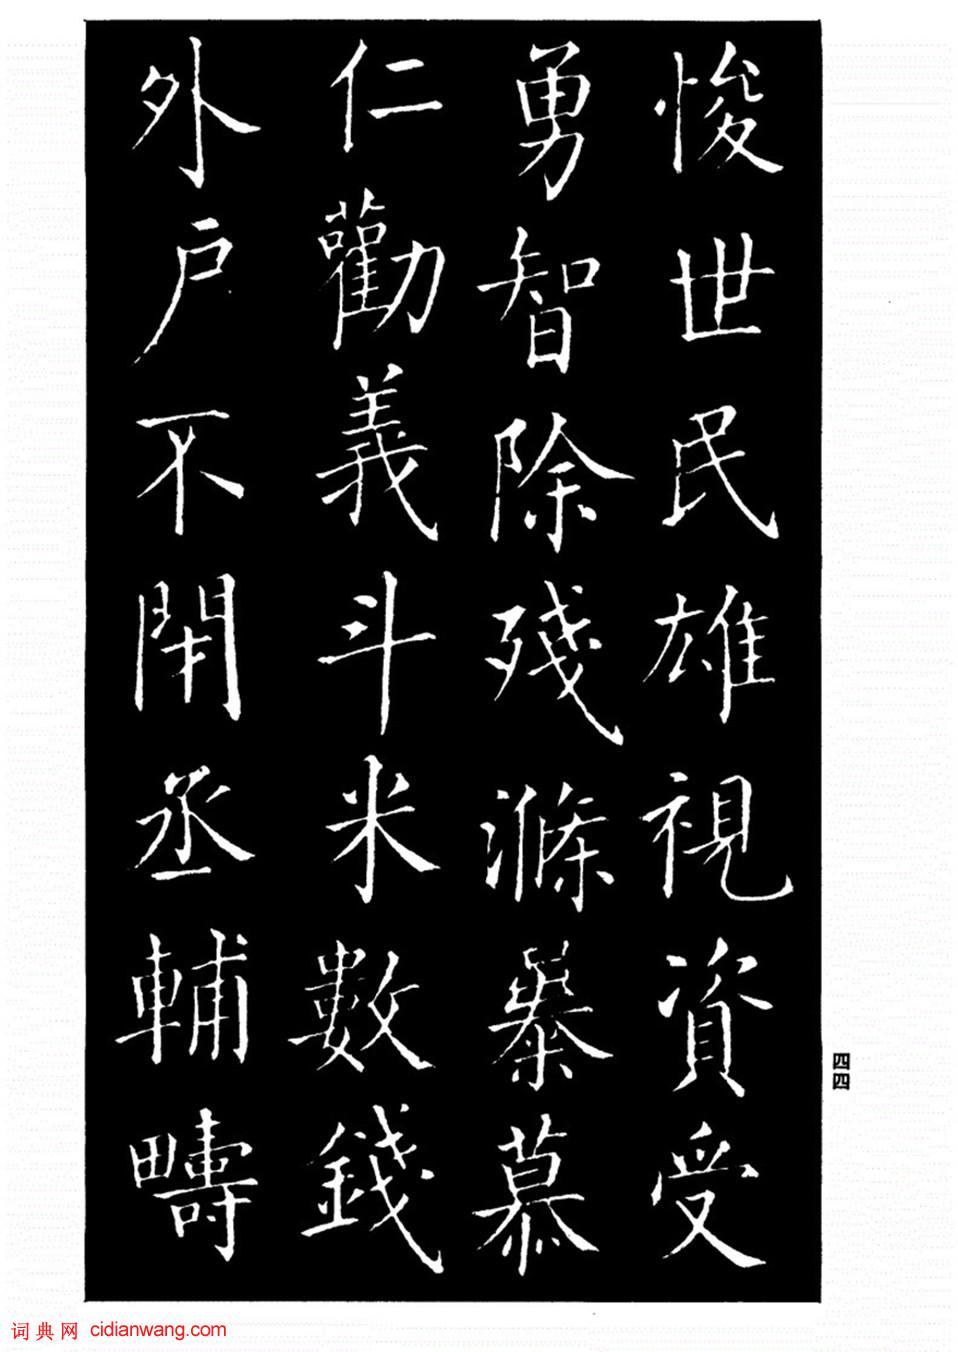 悛世民雄視資受
勇智除殘滌暴慕
仁勸義斗米數錢
外戶不閉丞輔疇
四四
词典网 cidianwang.com